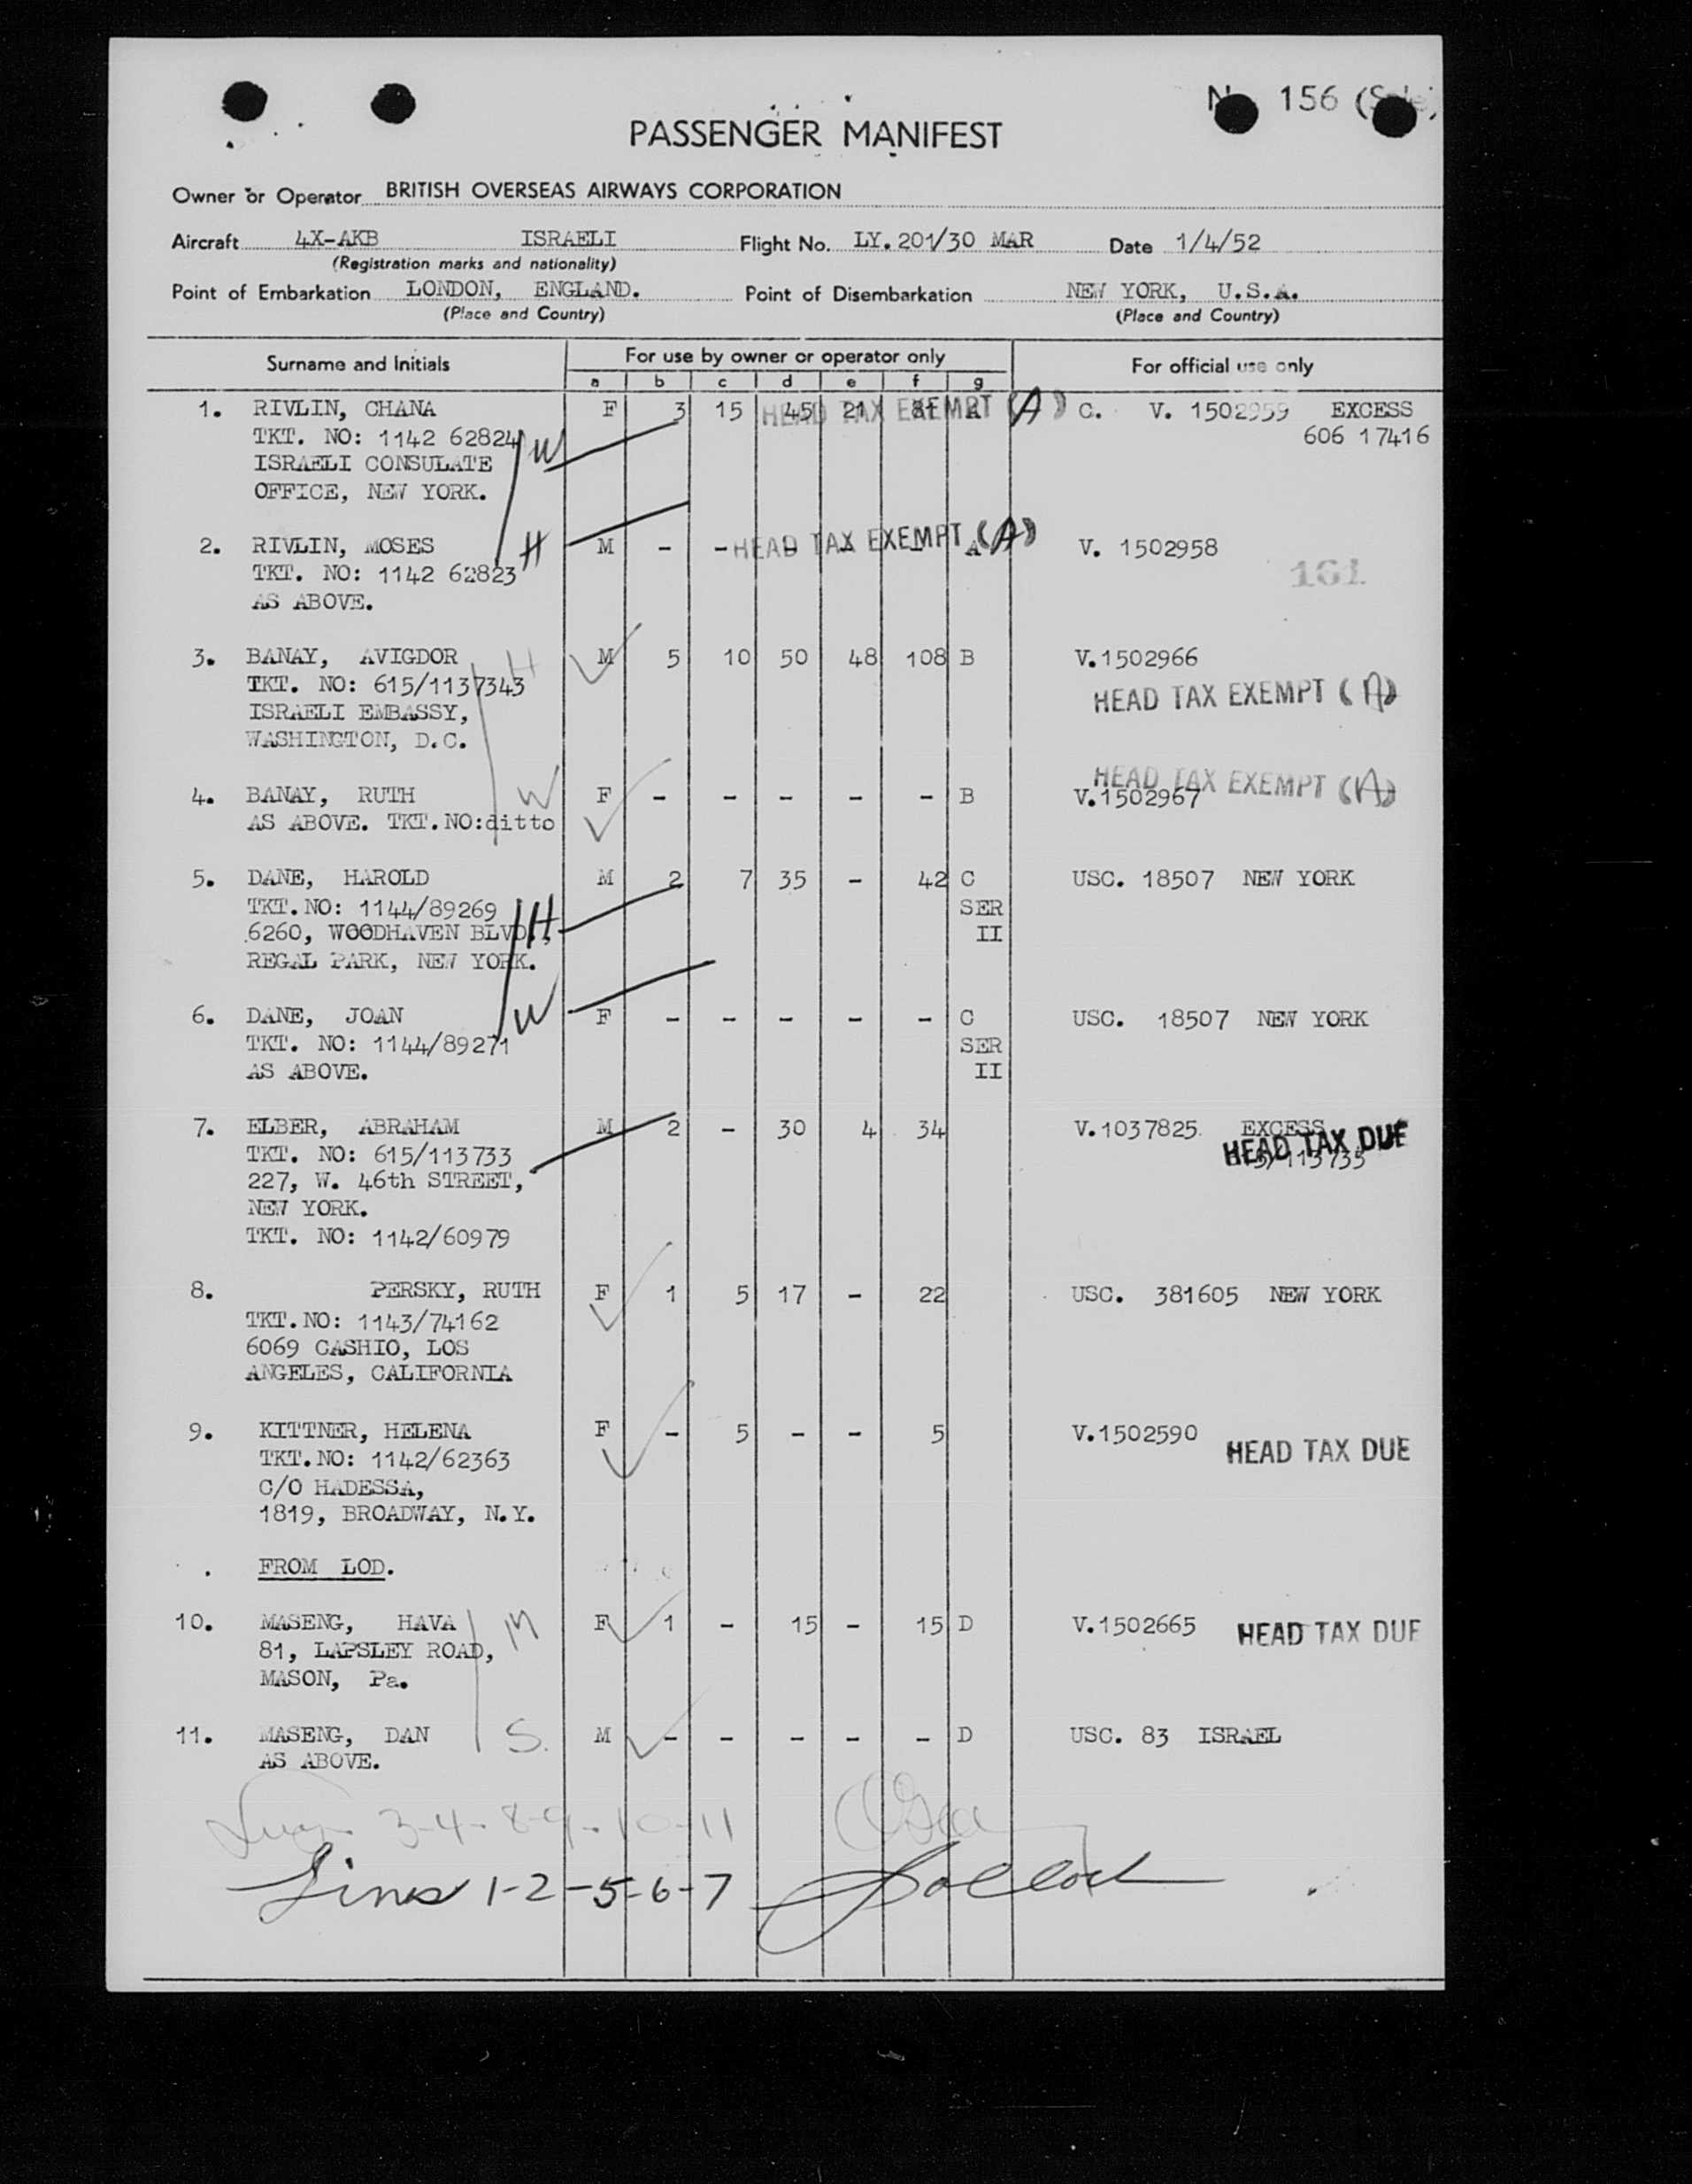 156
PASSENGER MANIFEST
Owner or Operator BRITISH OVERSEAS AIRWAYS CORPORATION
Aircraft 4X-AKB ISRAELI Flight No. LY. 201/30 MAR Date 1/4/52
(Registration marks and nationality)
Point of Embarkation LONDON, ENGLAND. Point of Disembarkation NEW YORK, U.S.A.
(Place and Country) (Place and Country)
Surname and Initials For use by owner or operator only For official use only
a b c d e f g
1. RIVLIN, CHANA F 3 15 45 21 81 A HEAD TAX EXEMPT (A) C. V. 1502959 EXCESS
TKT. NO: 1142 62824 W 606 17416
ISRAELI CONSULATE
OFFICE, NEW YORK.
2. RIVLIN, MOSES H M - - - - - A HEAD TAX EXEMPT (A) V. 1502958
TKT. NO: 1142 62823 161
AS ABOVE.
3. BANAY, AVIGDOR H M 5 10 50 48 108 B V.1502966
TKT. NO: 615/1137343 HEAD TAX EXEMPT (A)
ISRAELI EMBASSY,
WASHINGTON, D.C.
HEAD TAX EXEMPT (A)
4. BANAY, RUTH W F - - - - - B V.1502967
AS ABOVE. TKT.NO:ditto
5. DANE, HAROLD M 2 7 35 - 42 C USC. 18507 NEW YORK
TKT.NO: 1144/89269 H SER
6260, WOODHAVEN BLVD., II
REGAL PARK, NEW YORK.
6. DANE, JOAN W F - - - - - C USC. 18507 NEW YORK
TKT. NO: 1144/89271 SER
AS ABOVE. II
7. ELBER, ABRAHAM M 2 - 30 4 34 V.1037825 EXCESS
TKT. NO: 615/113733 HEAD TAX DUE 113735
227, W. 46th STREET,
NEW YORK.
TKT. NO: 1142/60979
8. PERSKY, RUTH F 1 5 17 - 22 USC. 381605 NEW YORK
TKT.NO: 1143/74162
6069 CASHIO, LOS
ANGELES, CALIFORNIA
9. KITTNER, HELENA F - 5 - - 5 V.1502590 HEAD TAX DUE
TKT.NO: 1142/62363
C/O HADESSA,
1819, BROADWAY, N.Y.
FROM LOD.
10. MASENG, HAVA M F 1 - 15 - 15 D V.1502665 HEAD TAX DUE
81, LAPSLEY ROAD,
MASON, Pa.
11. MASENG, DAN S. M - - - - - D USC. 83 ISRAEL
AS ABOVE.
3-4-8-9-10-11
Lines 1-2-5-6-7